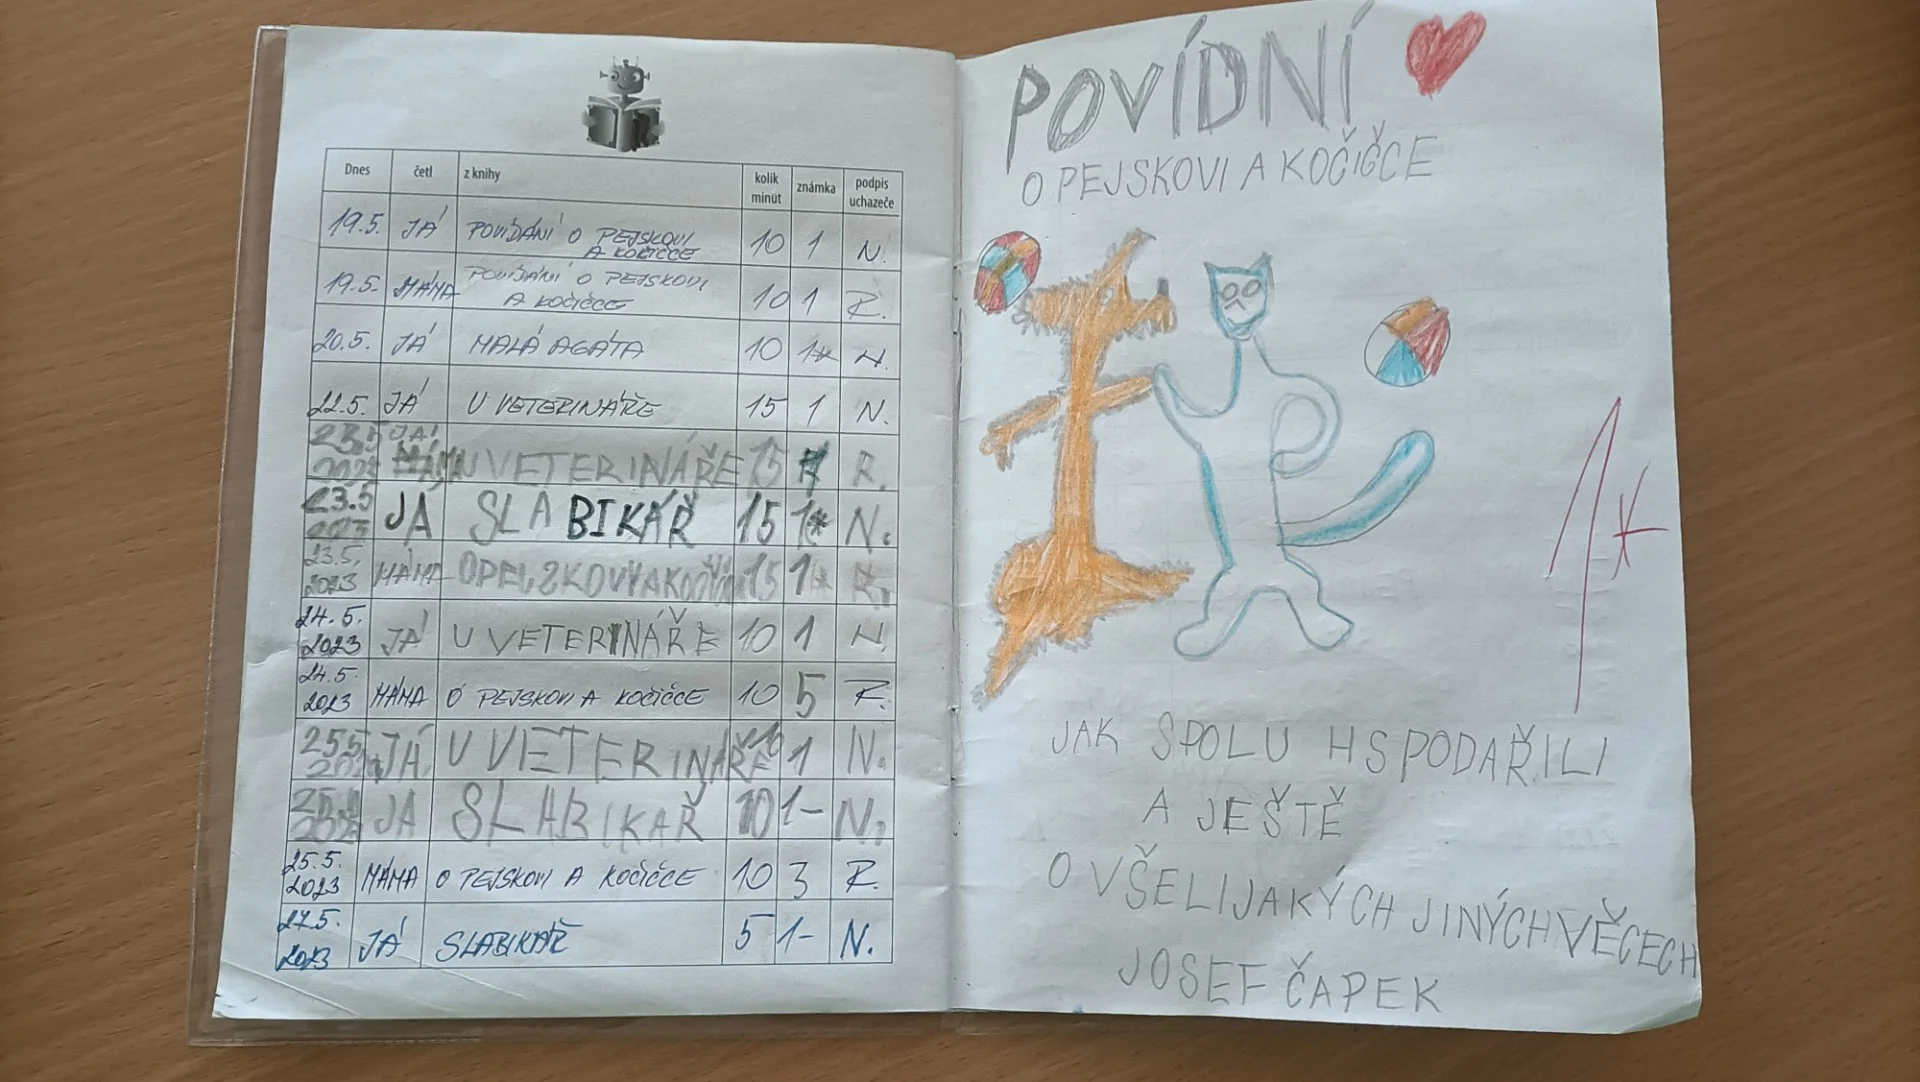 Dnes četl z knihy kolik minut známka podpis uchazeče
19.5. JÁ POVÍDÁNÍ O PEJSKOVI A KOČIČCE 10 1 N.
19.5. MÁMA POVÍDÁNÍ O PEJSKOVI A KOČIČCE 10 1 R.
20.5. JÁ MALÁ AGÁTA 10 1* N.
22.5. JÁ U VETERINÁŘE 15 1 N.
23.5 2023 JÁ U VETERINÁŘE 15 R.
23.5 2023 JÁ SLABIKÁŘ 15 1* N.
23.5. 2023 MÁMA 15 1* R.
24.5. 2023 JÁ U VETERINÁŘE 10 1 N
24.5. 2023 MÁMA O PEJSKOVI A KOČIČCE 10 5 R.
25.5 JÁ U VETERINÁŘE 10 1 N.
JÁ SLABIKÁŘ 10 1- N.
25.5. 2023 MÁMA O PEJSKOVI A KOČIČCE 10 3 R.
27.5. 2023 JÁ SLABIKÁŘ 5 1- N.
POVÍDNÍ
O PEJSKOVI A KOČIČCE
1*
JAK SPOLU HSPODAŘILI
A JEŠTĚ
O VŠELIJAKÝCH JINÝCH VĚCECH
JOSEF ČAPEK